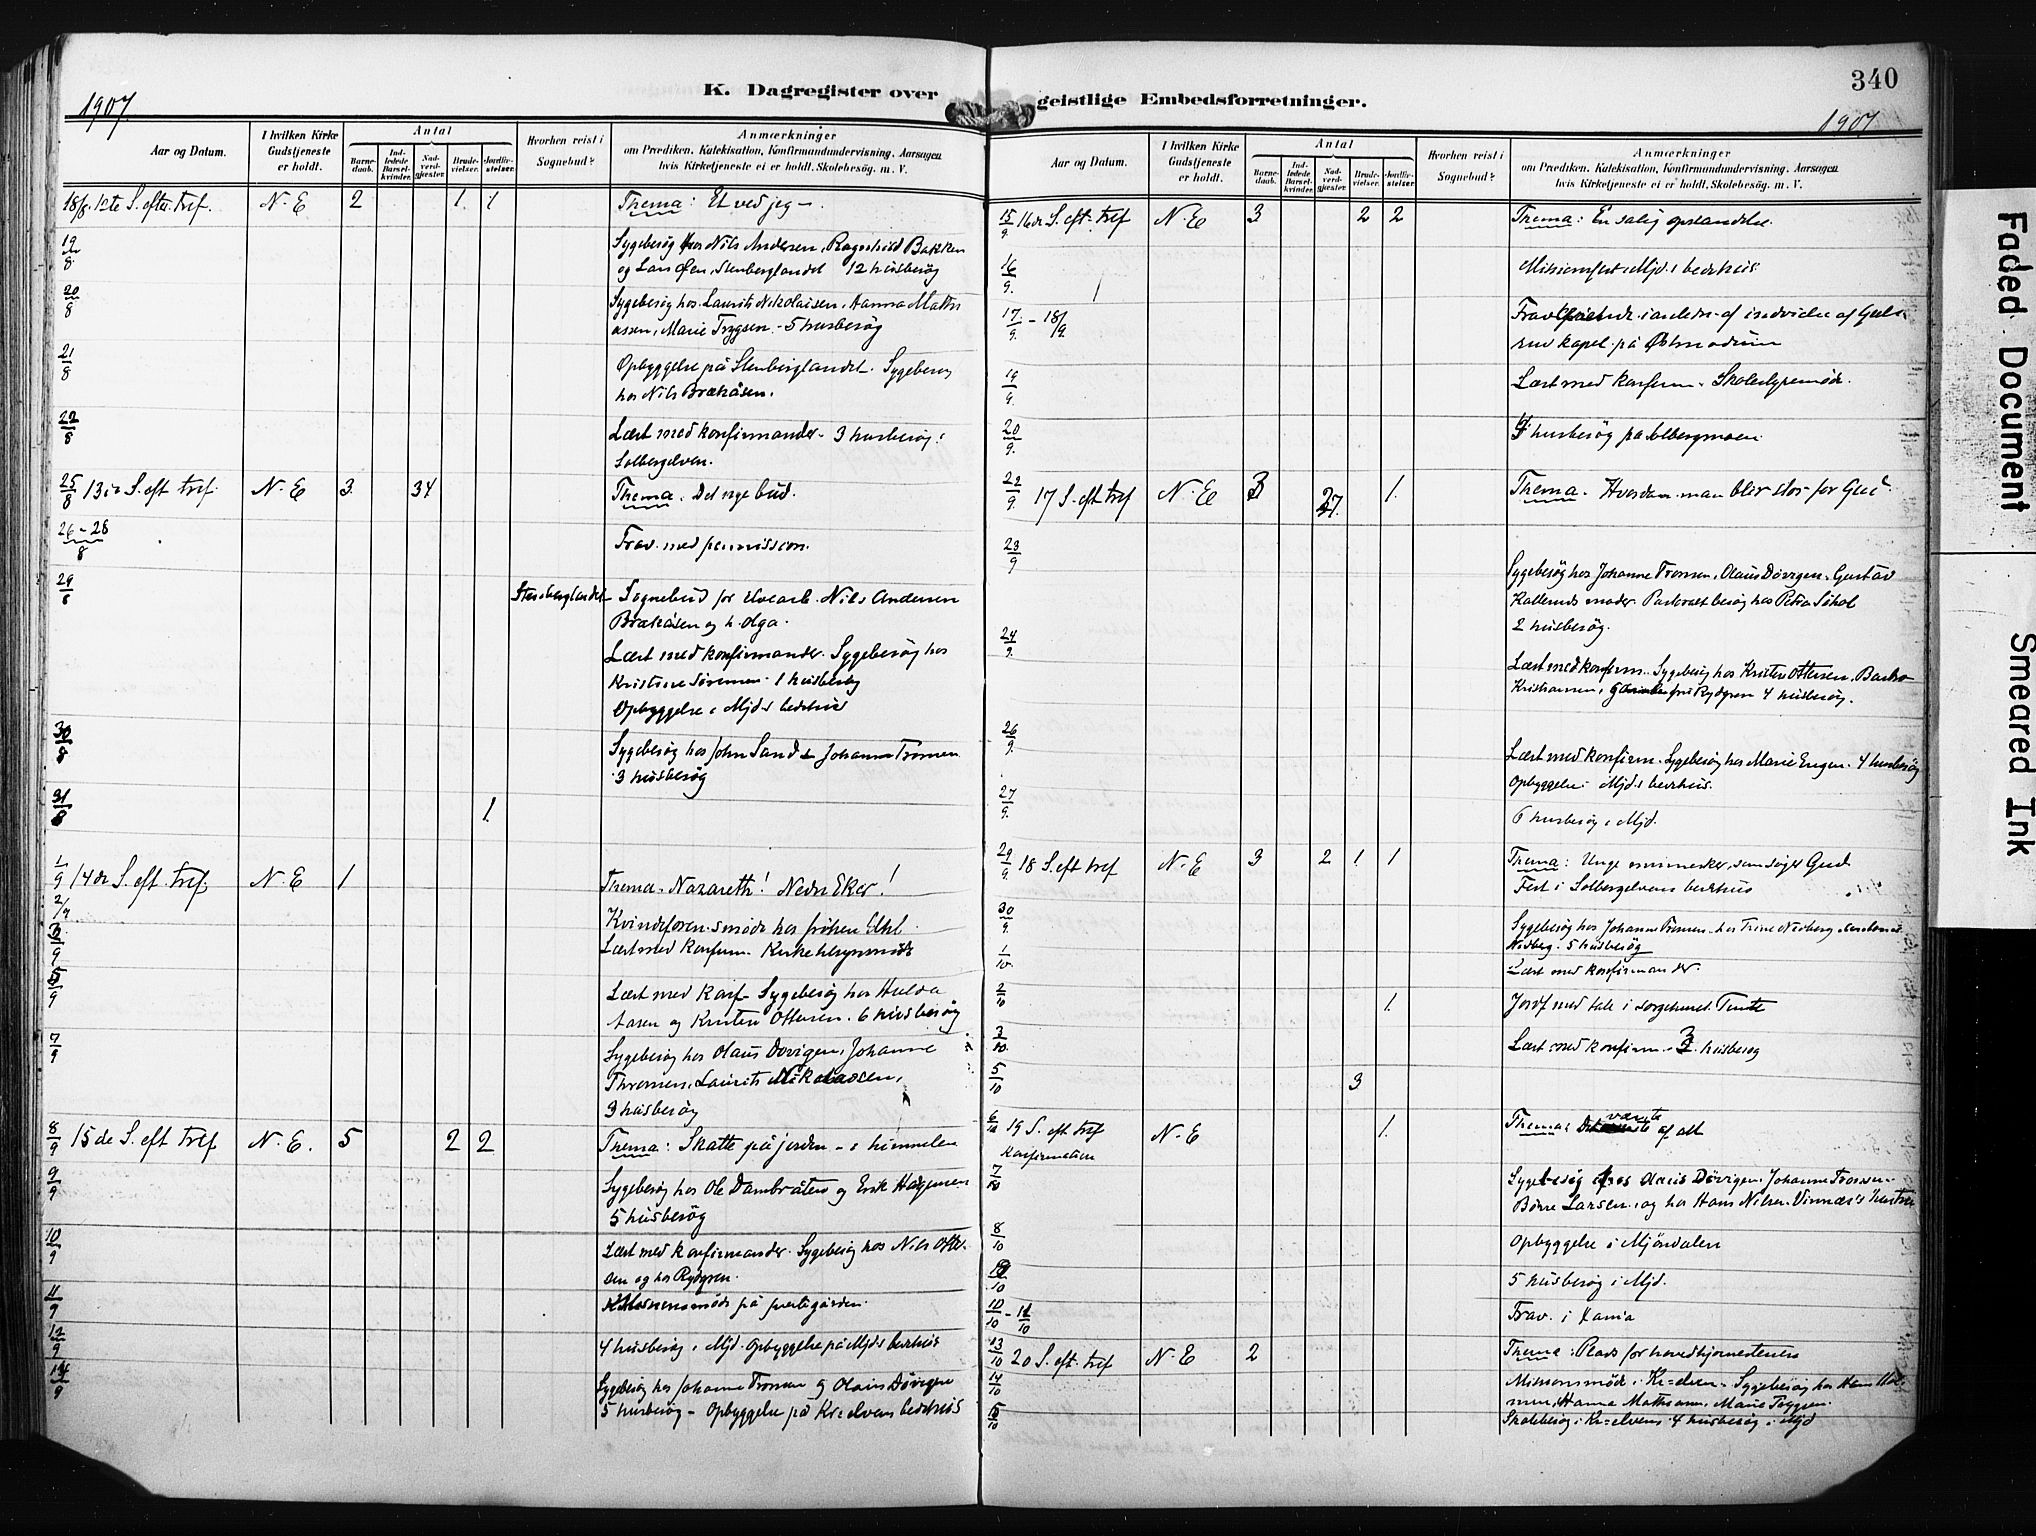 1907.
K. Dagregister over
Aar og Datum.
I hvilken Kirke Gudstjeneste er holdt.
Antal
Barnedaab.
Indledede Barselkvinder.
Nadverdgjester.
Brudevielser.
Jordfæstelser.
Hvorhen reist i Sognebud?
Anmærkninger
om Prædiken, Katekisation, Konfirmandundervisning, Aarsagen
hvis Kirketjeneste ei er holdt, Skolebesøg. m. V.
18/8. 12te S. efter tref. N. E 2 1. 1 Thema: Et ved jeg –.
19/8 Sygebesøg hos Nils Andersen, Ragnhild Bakken
og Lars Øen, Stenberglandet 12 husbesøg
20/8 Sygebesøg hos Laurits Nikolaisen, Hanna Mathi
assen, Marie Trygsen. – 5 husbesøg
21/8 Opbyggelse på Stenberglandet. Sygebesøg
hos Nils Brækåsen.
22/8 Læst med konfirmander – 3 husbesøg i
Solbergelven.
25/8 13de S. eft tref. N. E 3. 34 Thema. Det nye bud.
26–28/8 Frav. med permission.
29/8 Stenberglandet Sognebud for Nils Andersen
Brækåsen og h. Olga.
Læst med konfirmander. Sygebesøg hos
Kristine Sørensen. 1 husbesøg
Opbyggelse i Mjd.s bedehus
30/8 Sygebesøg hos John Sand & Johanne Tromsen
3 husbesøg
31/8 1.
1/9 14de S. eft. tref. N. E 1 Thema. Nazareth! Nedre Eker!
2/9 Kvindeforen.smøde hos frøken
3/9 Læst med konfirm. Kirketilsynsmøde
5/9 Læst med konf. Sygebesøg hos Hulda
Aasen og Kristen Ottersen. 6 husbesøg
7/9 Sygebesøg hos Olaus Døvigen, Johanne
Thromsen, Laurits Nikolaisen,
3 husbesøg
8/9 15de S. eft tref N. E. 5 2 2 Thema: Skatte på jorden – i himmelen
9/9 Sygebesøg hos Ole Dambråten og Erik Hagensen
5 husbesøg
10/9 Læst med konfirmander. Sygebesøg hos Nils Otter
sen og hos Rydgren.
11/9 Missionsmøde på prestegården.
12/9 4 husbesøg i Mjd. Opbyggelse på Mjd.s bedehus
14/9 Sygebesøg hos Johanne Tromsen og Olaus Døvigen
5 husbesøg – Opbyggelse på Kr=elvens bedehus
340
1907
geistlige Embedsforretninger.
Aar og Datum.
I hvilken Kirke Gudstjeneste er holdt.
Antal
Barnedaab.
Indledede Barselkvinder.
Nadverdgjester.
Brudevielser.
Jordfæstelser.
Hvorhen reist i Sognebud?
Anmærkninger
om Prædiken, Katekisation, Konfirmandundervisning, Aarsagen
hvis Kirketjeneste ei er holdt, Skolebesøg. m. V.
15/9 16de S. eft. tref N. E 3 2 2 Thema: En salig opstandelse
16/9. Missionsfest i Mjd.s bedehus
17/9. – 18/9. Fraværende i anledn. af indvielse af
rud kapel på Østmodum
19/9. Læst med konfirm. Skolestyremøde.
20/9. 4 husbesøg på Solbergmoen
22/9. 17 S. eft tref N. E 3 27. 1. Thema. Hvordan man blir stor for Gud.
23/9 Sygebesøg hos Johanne Tromsen, Olaus Døvigen, Gustav
Kallerud's moder. Privat besøg hos Petra
2 husbesøg.
24/9. Læst med konfirm. Sygebesøg hos Kristen Ottersen,
Kristiansen, fru Rydgren 4 husbesøg.
26/9. Læst med konfirm. Sygebesøg hos Marie Engen. 4 husbesøg
Opbyggelse i Mjd.s bedehus.
27/9. 6 husbesøg i Mjd.
29/9. 18 S. eft tref N. E 3 2 1. 1 Thema: Unge mennesker, som søger Gud
Fest i Solbergelvens bedehus
30/9. Sygebesøg hos Johanne Tromsen, hos Trine Nedberg,
Nedberg. 5 husbesøg
1/10. Læst med konfirmander.
2/10 1. Jordf med tale i sorgehuset.
3/10. Læst med konfirm. 3 husbesøg
5/10 3
6/10 19 S. eft tref N. E 1. Thema: Det største af alt
Konfirmation
7/10 Sygebesøg hos Olaus Døvigen, Johanne Tromsen,
Børre Larsen, og hos Hans Nilsen Vinnæs's hustru
8/10 Opbyggelse i Mjøndalen
9/10 5 husbesøg i Mjd.
10/10 – 11/10 Frav. i Xania
13/10 20 S. eft. tref N. E 2 Thema: Plads for hovedhjørnestenen
14/10 Missionsmøde i Kr=elven. Sygebesøg hos Hans
Hanna Mathisen, Marie Tryggsen.
15/10 Skolebesøg i Kr=elvens. 4 husbesøg i Mjd
Faded Document
Smeared Ink